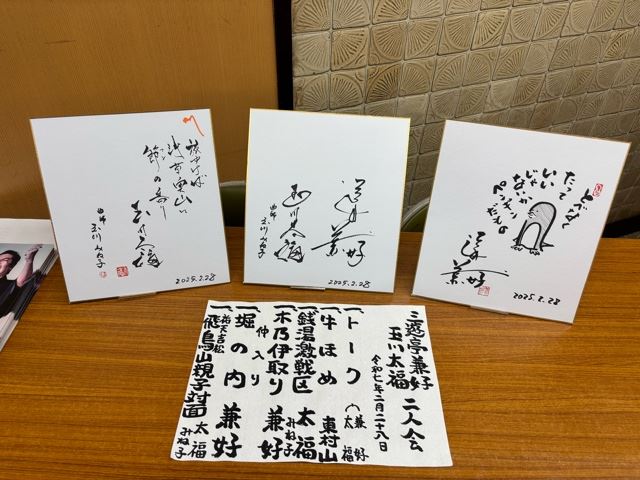 旅ゆけば
浅草奥山に
玉川太福
曲師
玉川みね子
2025.2.28
三遊亭兼好
玉川太福
曲師
玉川みね子
2025.2.28
とべなく
たって
いい
じゃ
ないか
三遊亭兼好
2025.2.28
三遊亭兼好
玉川太福 二人会
令和七年二月二十八日
一トーク 兼好 太福
一牛ほめ 東村山
一銭湯激戦区 太福 みね子
一木乃伊取り 兼好
仲入り
一堀の内 兼好
祐天吉松
一飛鳥山親子対面 太福 みね子